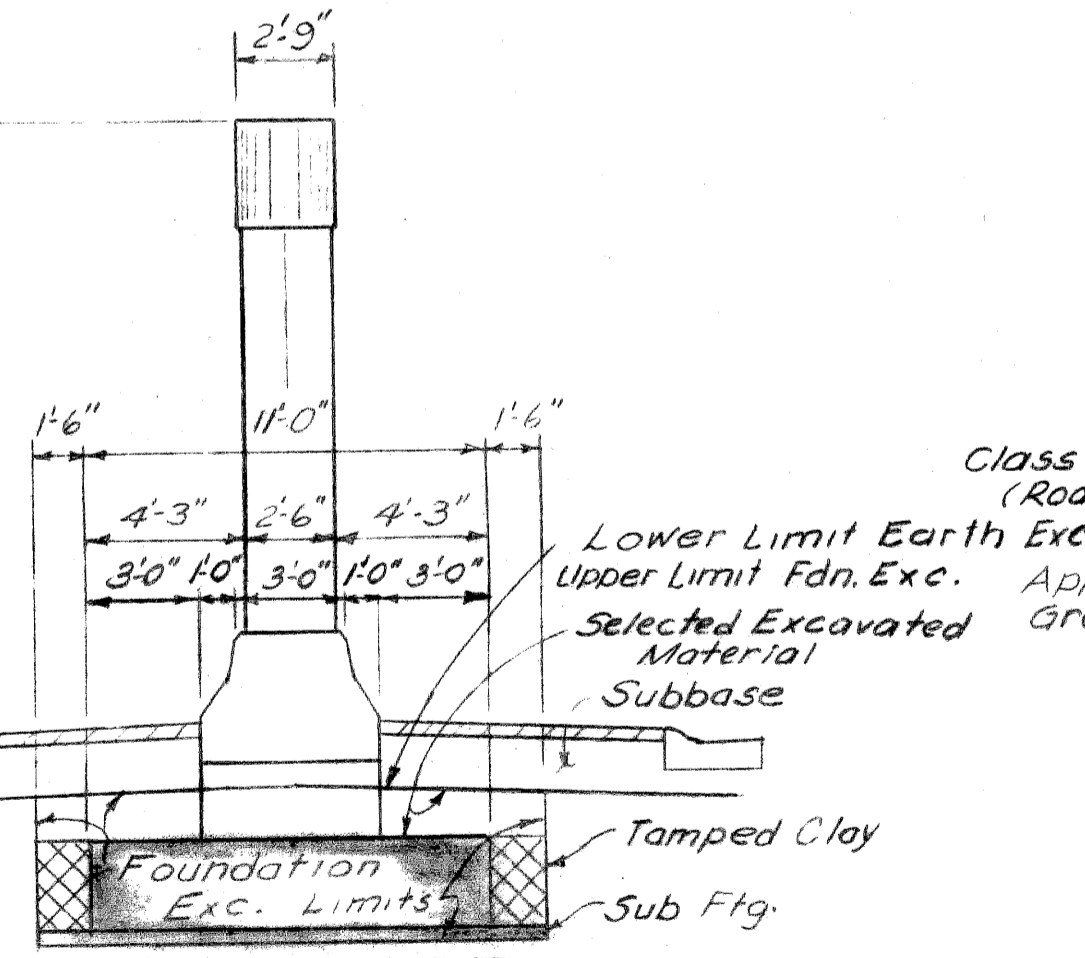 2'-9"
1'-6"
11'-0"
1'-6"
4'-3"
2'-6"
4'-3"
3'-0"
1'-0"
3'-0"
1'-0"
3'-0"
Class
(Roa
Lower Limit Earth Exc
Upper Limit Fdn. Exc.
App
Gra
Selected Excavated
Material
Subbase
Tamped Clay
Foundation
Exc. Limits
Sub Ftg.